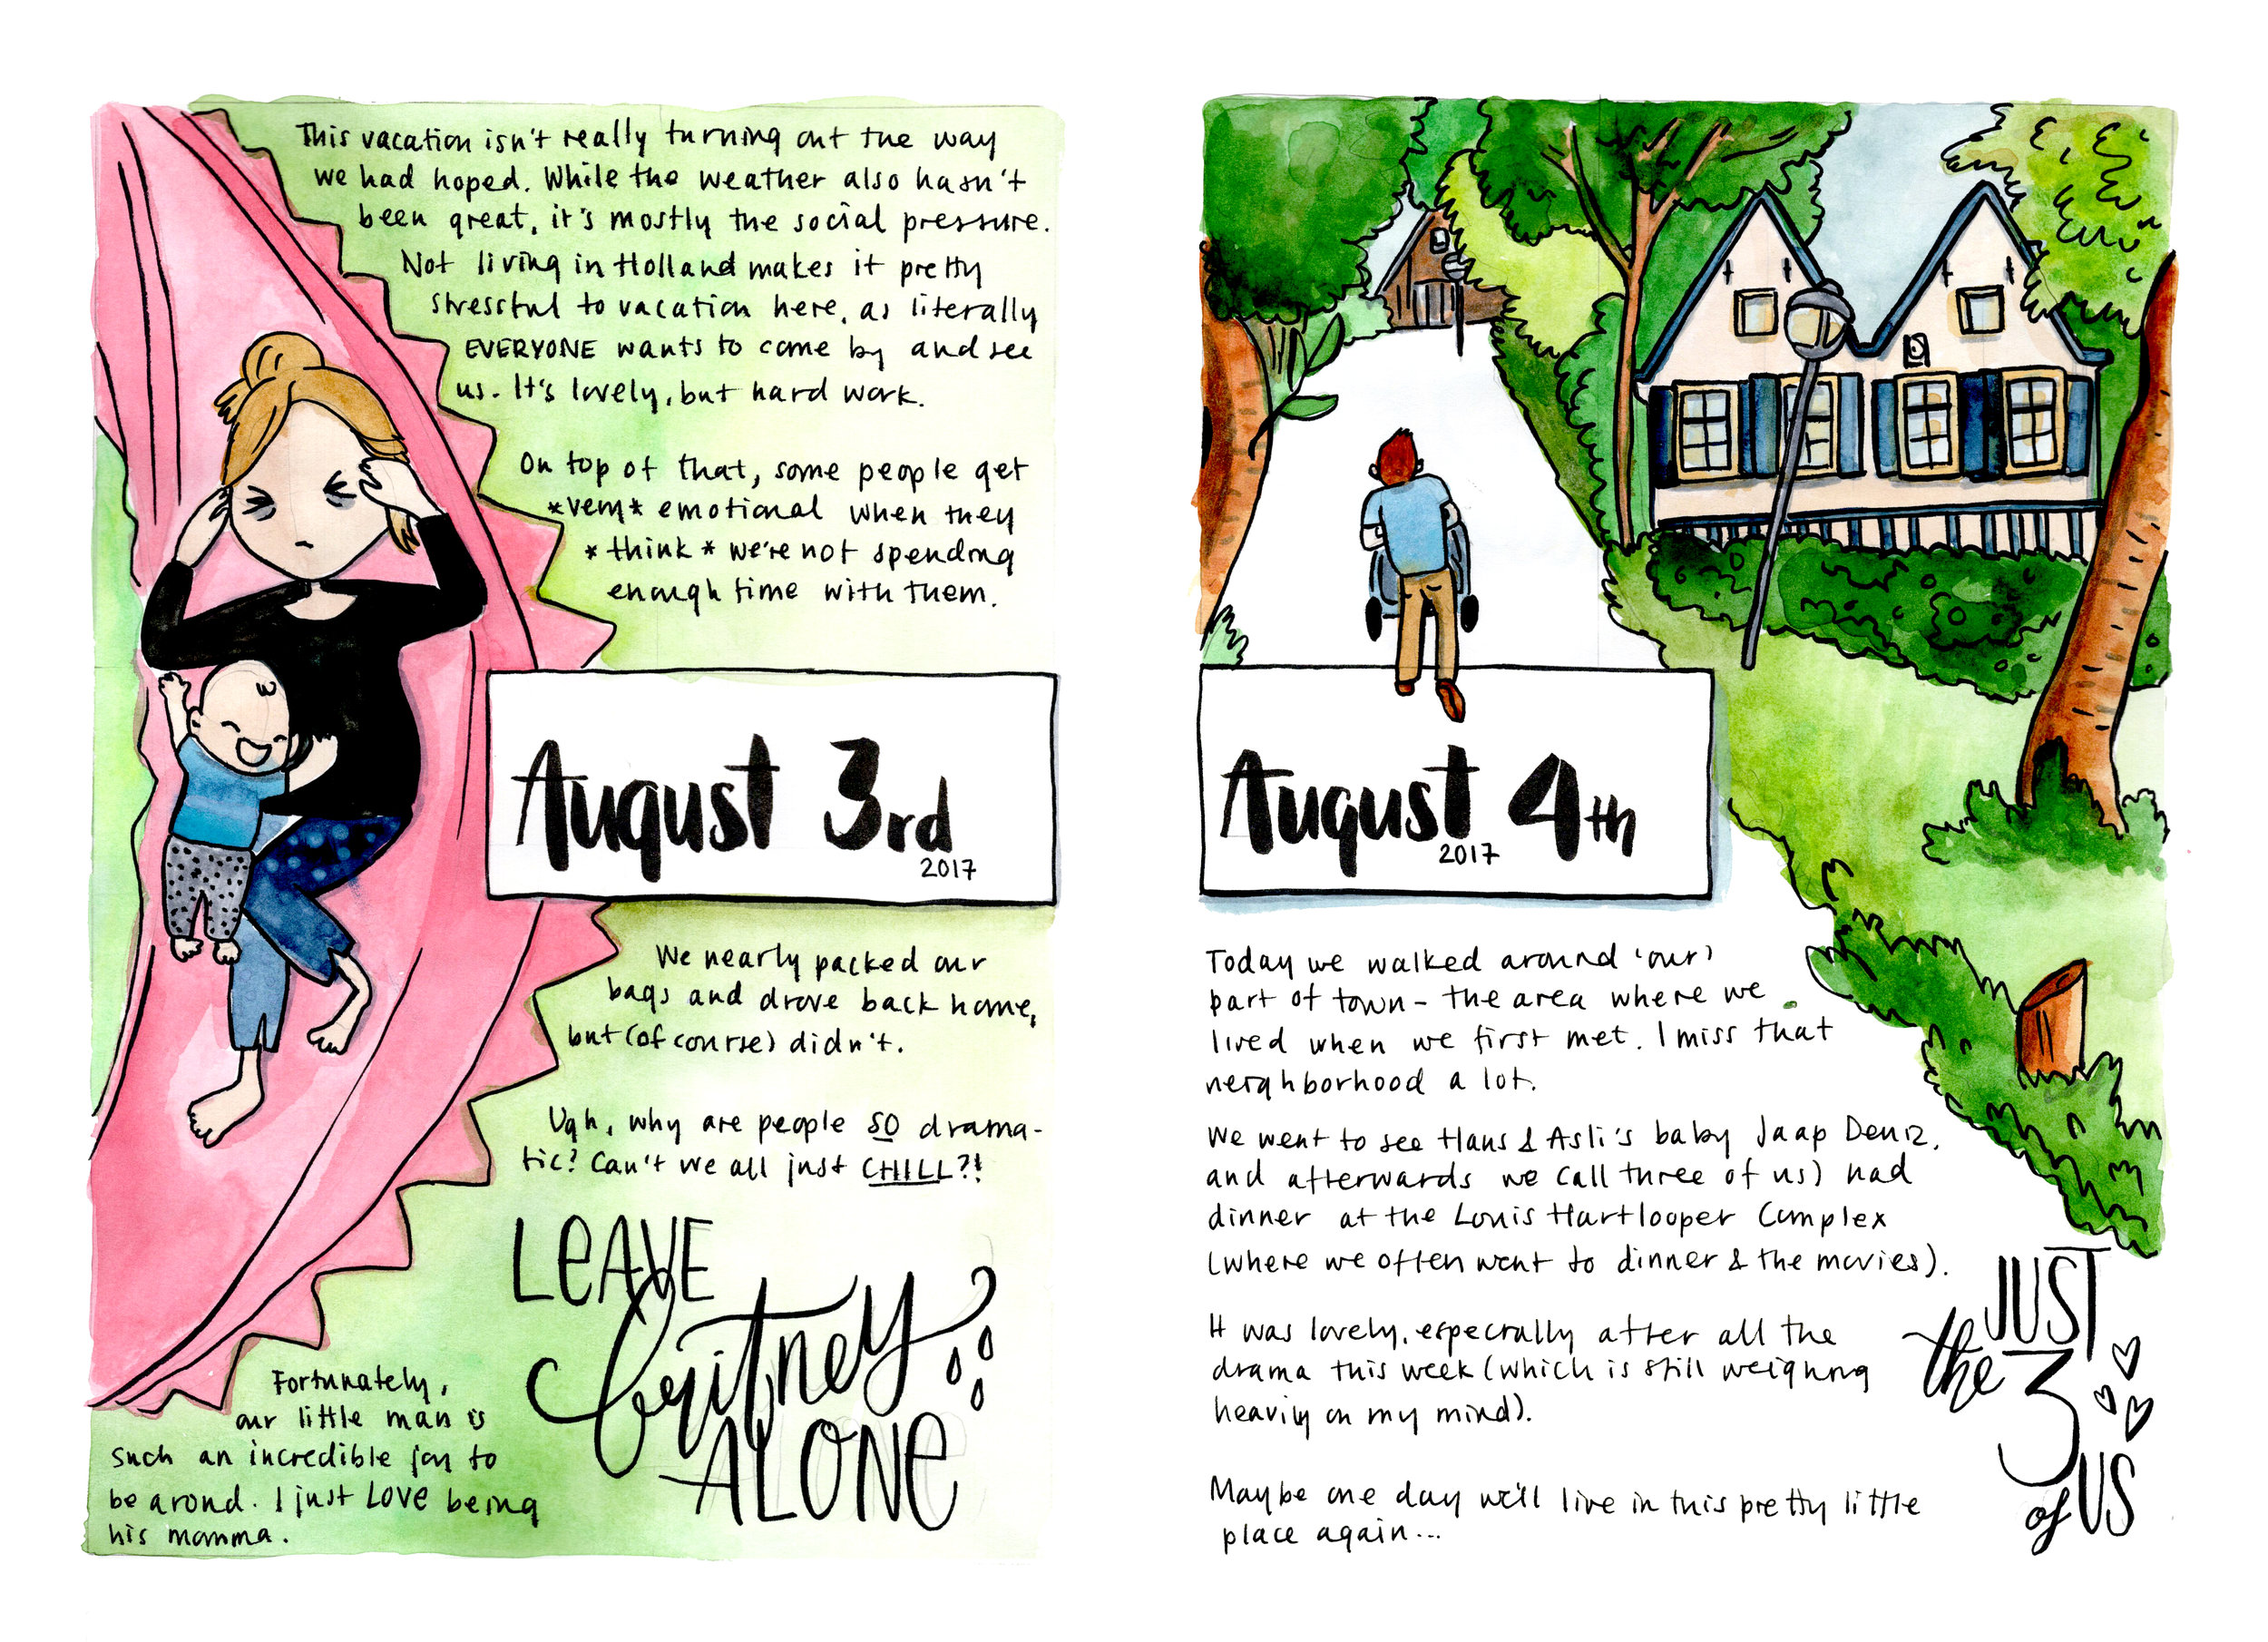 This vacation isn't really turning out the way
we had hoped. While the weather also hasn't
been great, it's mostly the social pressure.
Not living in Holland makes it pretty
stressful to vacation here, as literally
EVERYONE wants to come by and see
us. It's lovely, but hard work.
On top of that, some people get
*very* emotional when they
*think* we're not spending
enough time with them.
August 3rd
2017
We nearly packed our
bags and drove back home,
but (of course) didn't.
Ugh, why are people SO drama-
tic? Can't we all just CHILL?!
LEAVE
Britney
ALONE
Fortunately,
our little man is
such an incredible joy to
be arond. I just LOVE being
his mamma.
August 4th
2017
Today we walked around 'our'
part of town - the area where we
lived when we first met. I miss that
neighborhood a lot.
We went to see Hans & Asli's baby Jaap Deniz,
and afterwards we (all three of us) had
dinner at the Louis Hartlooper Complex
(where we often went to dinner & the movies).
It was lovely, especially after all the
drama this week (which is still weighing
heavily on my mind).
Maybe one day we'll live in this pretty little
place again...
JUST
the 3
of US